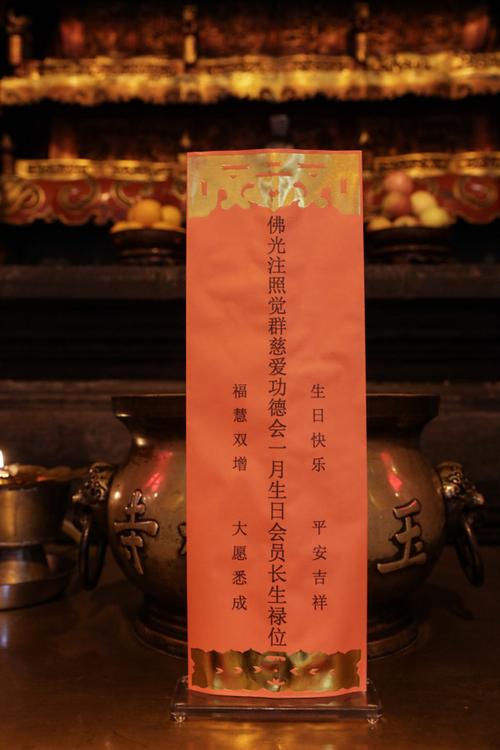 生日快乐 平安吉祥
佛光注照觉群慈爱功德会一月生日会员长生禄位
福慧双增 大愿悉成
玉
寺